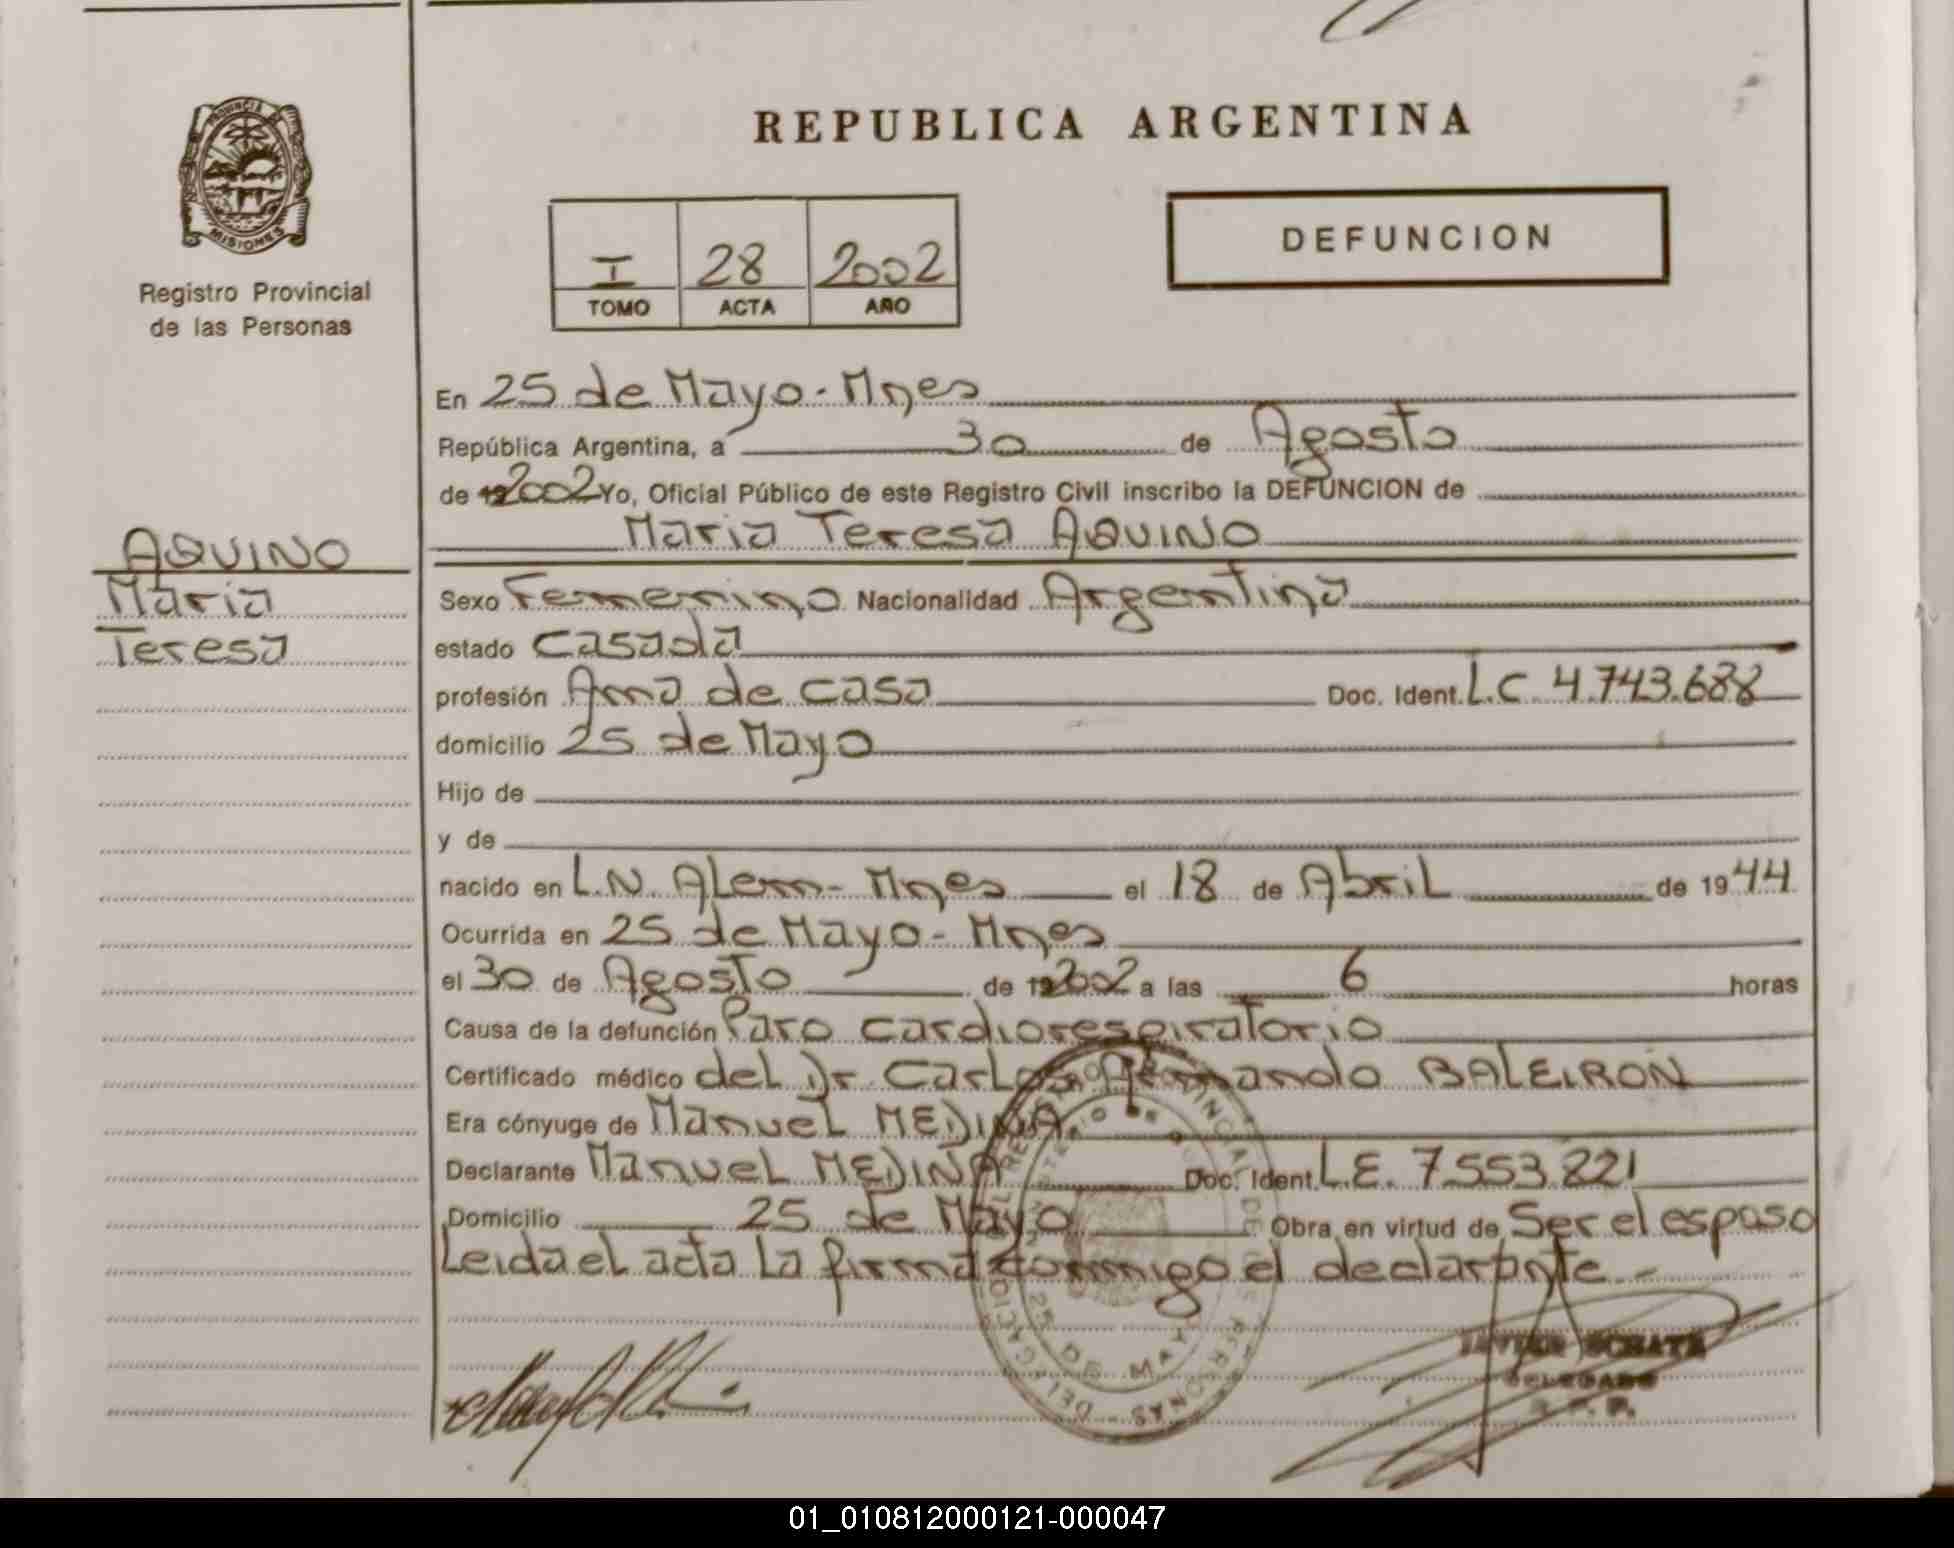 PROVINCIA
MISIONES
Registro Provincial
de las Personas
AQUINO
Maria
Teresa
REPUBLICA ARGENTINA
I 28 2002
TOMO ACTA AÑO
DEFUNCION
En 25 de Mayo - Mnes
República Argentina, a 30 de Agosto
de 19 2002 Yo, Oficial Público de este Registro Civil inscribo la DEFUNCION de
Maria Teresa AQUINO
Sexo Femenino Nacionalidad Argentina
estado Casada
profesión Ama de casa Doc. Ident. L.C 4.743.688
domicilio 25 de Mayo
Hijo de
y de
nacido en L.N. Alem - Mnes el 18 de Abril de 1944
Ocurrida en 25 de Mayo - Mnes
el 30 de Agosto de 19 2002 a las 6 horas
Causa de la defunción Paro cardiorespiratorio
Certificado médico del Dr. Carlos Armando BALEIRON
Era cónyuge de Manuel MEDINA
Declarante Manuel MEDINA Doc. Ident. L.E. 7.553.821
Domicilio 25 de Mayo Obra en virtud de Ser el esposo
Leida el acta la firma conmigo el declarante.-
25 DE MAYO
JAVIER
DELEGADO
R. P. P.
01_010812000121-000047